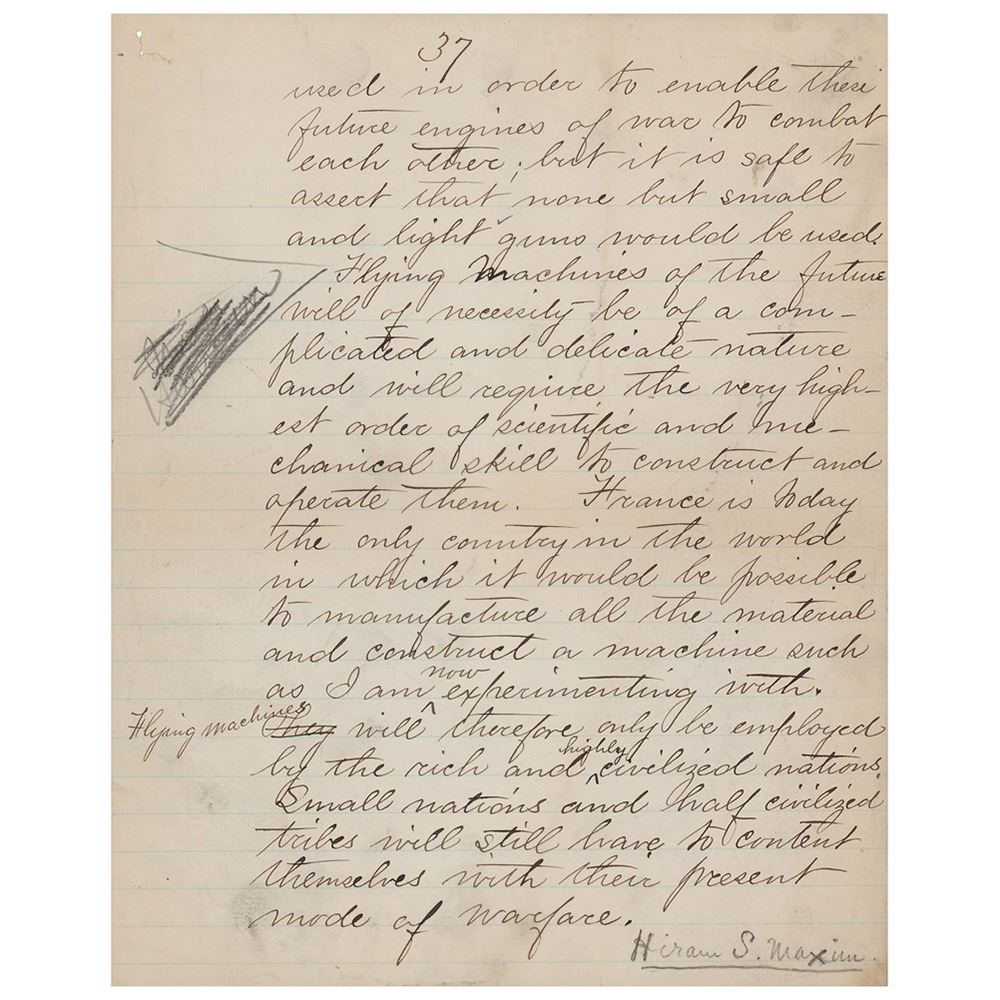 37
used in order to enable these
future engines of war to combat
each other; but it is safe to
assert that none but small
and light guns would be used.
Flying Machines of the future
will of necessity be of a com-
plicated and delicate nature
and will require the very high-
est order of scientific and me-
chanical skill to construct and
operate them. France is today
the only country in the world
in which it would be possible
to manufacture all the material
and construct a machine such
now
as I am ^ experimenting with.
Flying machines They will therefore only be employed
highly
by the rich and ^ civilized nations.
Small nations and half civilized
tribes will still have to content
themselves with their present
mode of warfare.
Hiram S. Maxim.